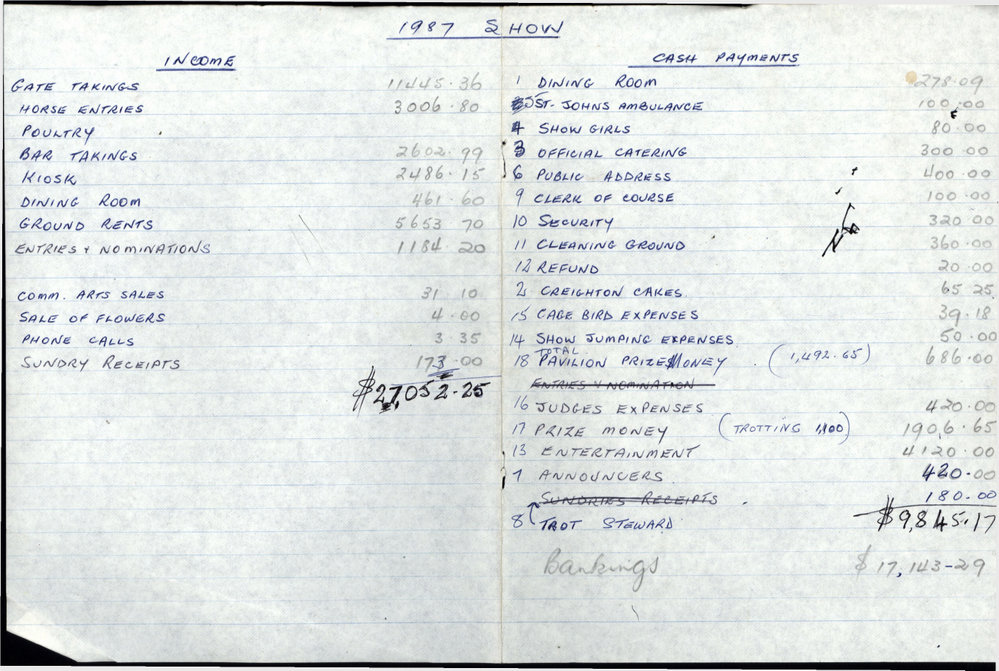 1987 SHOW
INCOME
GATE TAKINGS 11445.36
HORSE ENTRIES 3006.80
POULTRY
BAR TAKINGS 2602.99
KIOSK 2486.15
DINING ROOM 461.60
GROUND RENTS 5653 70
ENTRIES & NOMINATIONS 1184 20
COMM. ARTS SALES 31 10
SALE OF FLOWERS 4.00
PHONE CALLS 3.35
SUNDRY RECEIPTS 173.00
$27,052.25
CASH PAYMENTS
1 DINING ROOM 278.09
5 ST. JOHNS AMBULANCE 100.00
4 SHOW GIRLS 80.00
3 OFFICIAL CATERING 300.00
6 PUBLIC ADDRESS 400.00
9 CLERK OF COURSE 100.00
10 SECURITY 320.00
11 CLEANING GROUND 360.00
12 REFUND 20.00
2 CREIGHTON CAKES 65 25
15 CAGE BIRD EXPENSES 39.18
14 SHOW JUMPING EXPENSES 50.00
18 TOTAL PAVILION PRIZE MONEY (1,492.65) 686.00
ENTRIES & NOMINATION
16 JUDGES EXPENSES 420.00
17 PRIZE MONEY (TROTTING 1,100) 1906.65
13 ENTERTAINMENT 4120.00
7 ANNOUNCERS 420.00
SUNDRIES RECEIPTS 180.00
8 TROT STEWARD $9,845.17
Bankings $17,143-29